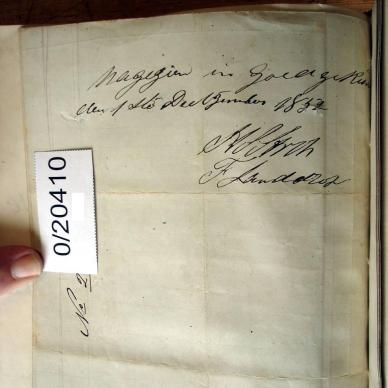 Nagezien in goedgekeur
den 1ste December 1832
F. Landorp
0/20410
No 2